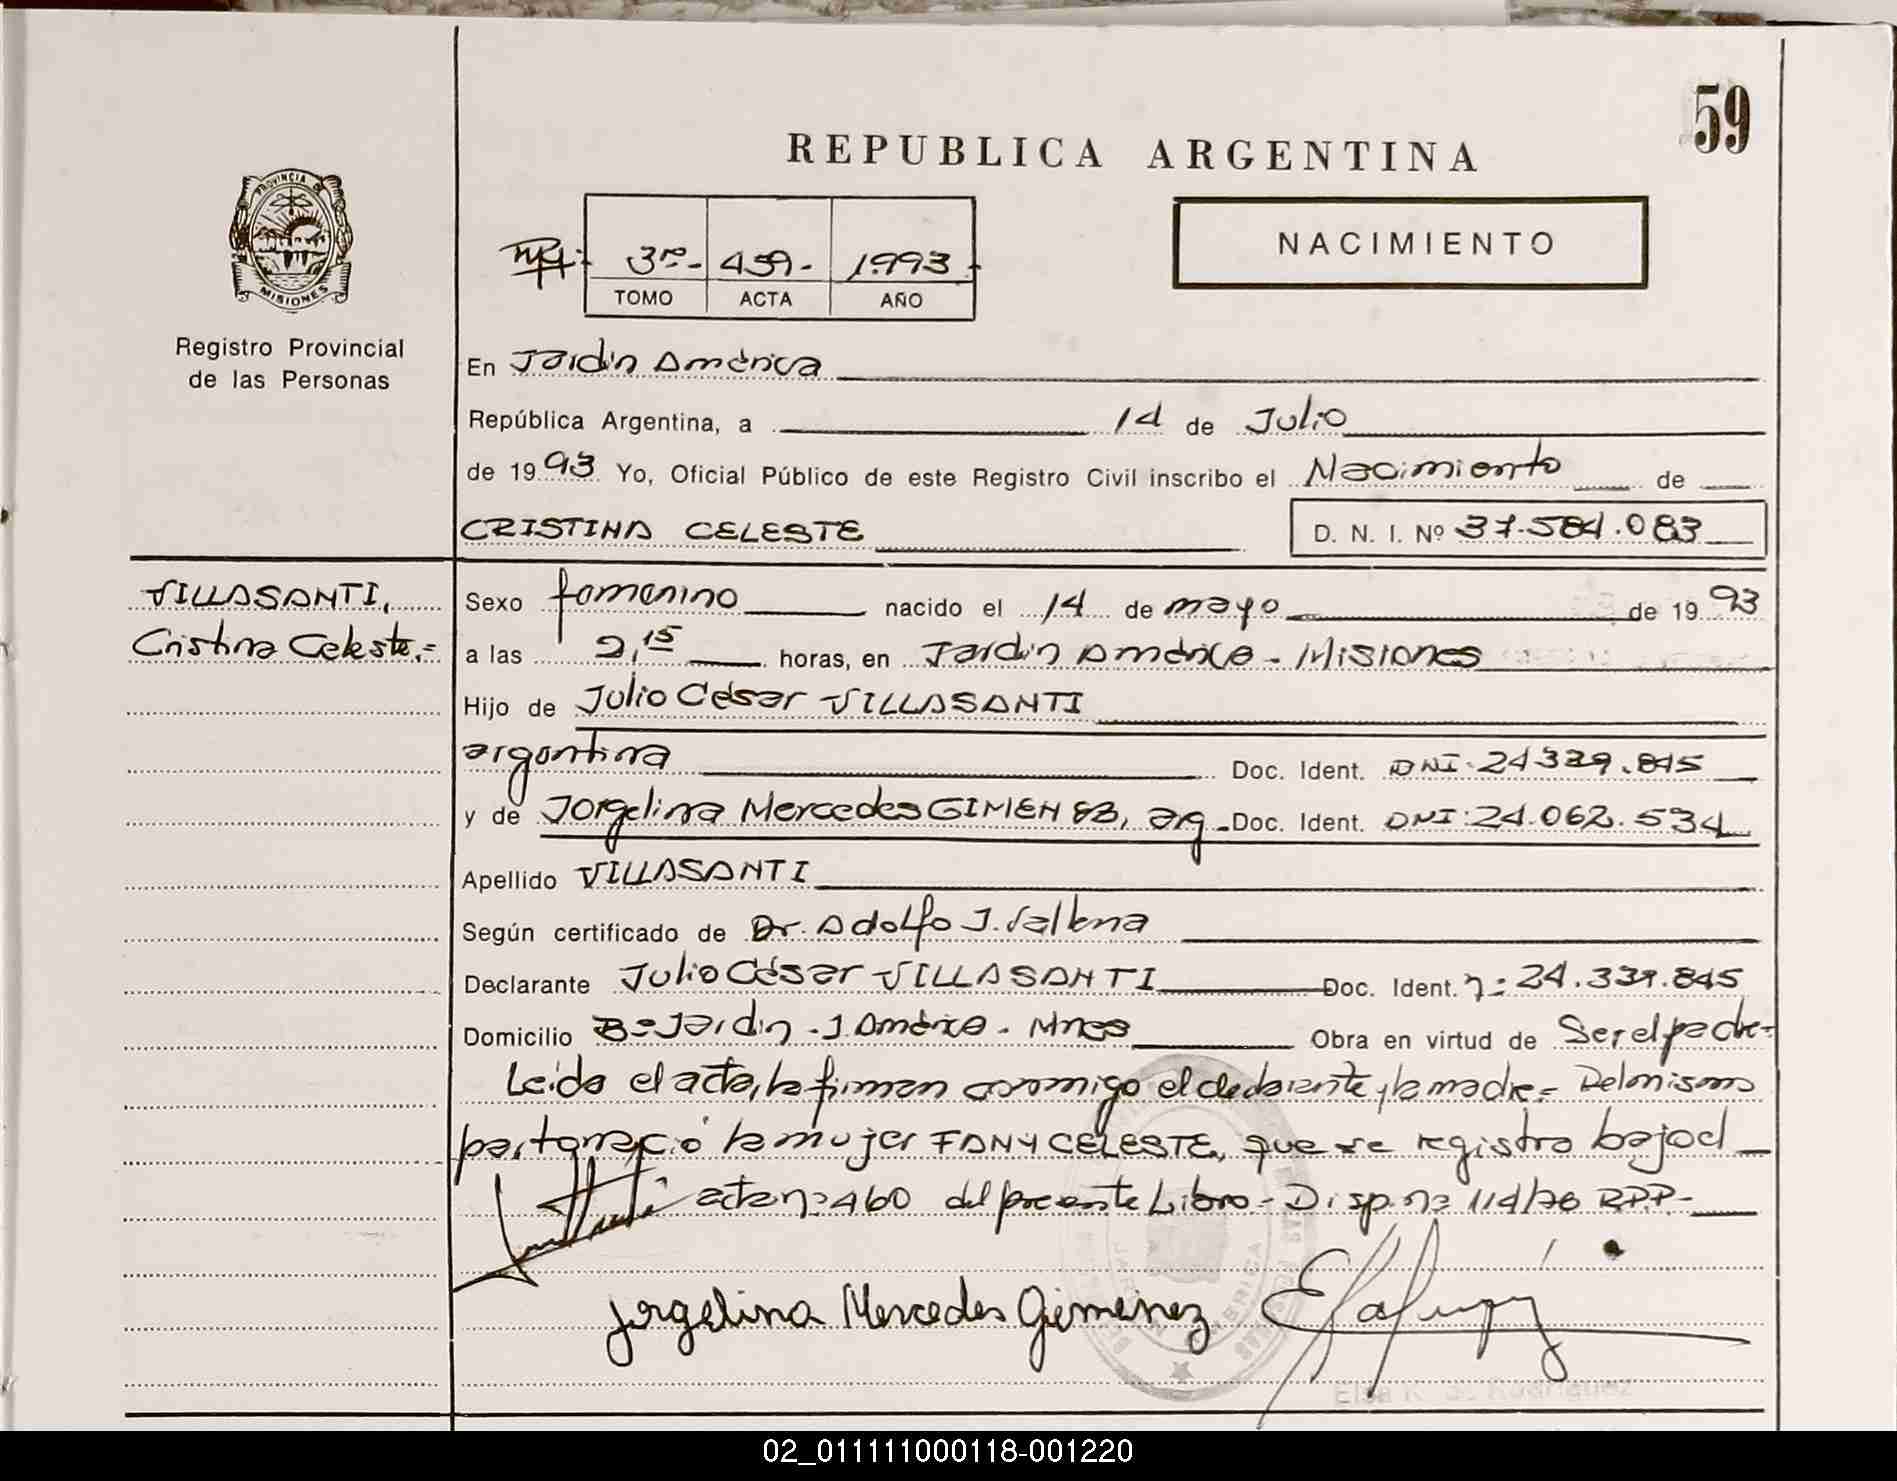 59
REPUBLICA ARGENTINA
PROVINCIA DE
MISIONES
Registro Provincial
de las Personas
3ro.- 459.- 1.993
TOMO ACTA AÑO
NACIMIENTO
En Jardín América
República Argentina, a 14 de Julio
de 1993 Yo, Oficial Público de este Registro Civil inscribo el Nacimiento de
CRISTINA CELESTE D. N. I. Nº 37.584.083
VILLASANTI,
Cristina Celeste.=
Sexo femenino nacido el 14 de mayo de 1993
a las 2,15 horas, en Jardín América - Misiones
Hijo de Julio César VILLASANTI
argentina Doc. Ident. DNI: 24339.845
y de Jorgelina Mercedes GIMENEZ, arg. Doc. Ident. DNI: 24.062.534
Apellido VILLASANTI
Según certificado de Dr. Adolfo J.
Declarante Julio César VILLASANTI Doc. Ident. n: 24.339.845
Domicilio Bº Jardín - J. América - Mnes Obra en virtud de Ser el padre=
Leída el acta, la firman conmigo el declarante y la madre= Del mismo
parto nació la mujer FANY CELESTE, que se registra bajo el
acta nº 460 del presente Libro - Disp. nº 114/76 RPP-
Jorgelina Mercedes Gimenez
02_011111000118-001220